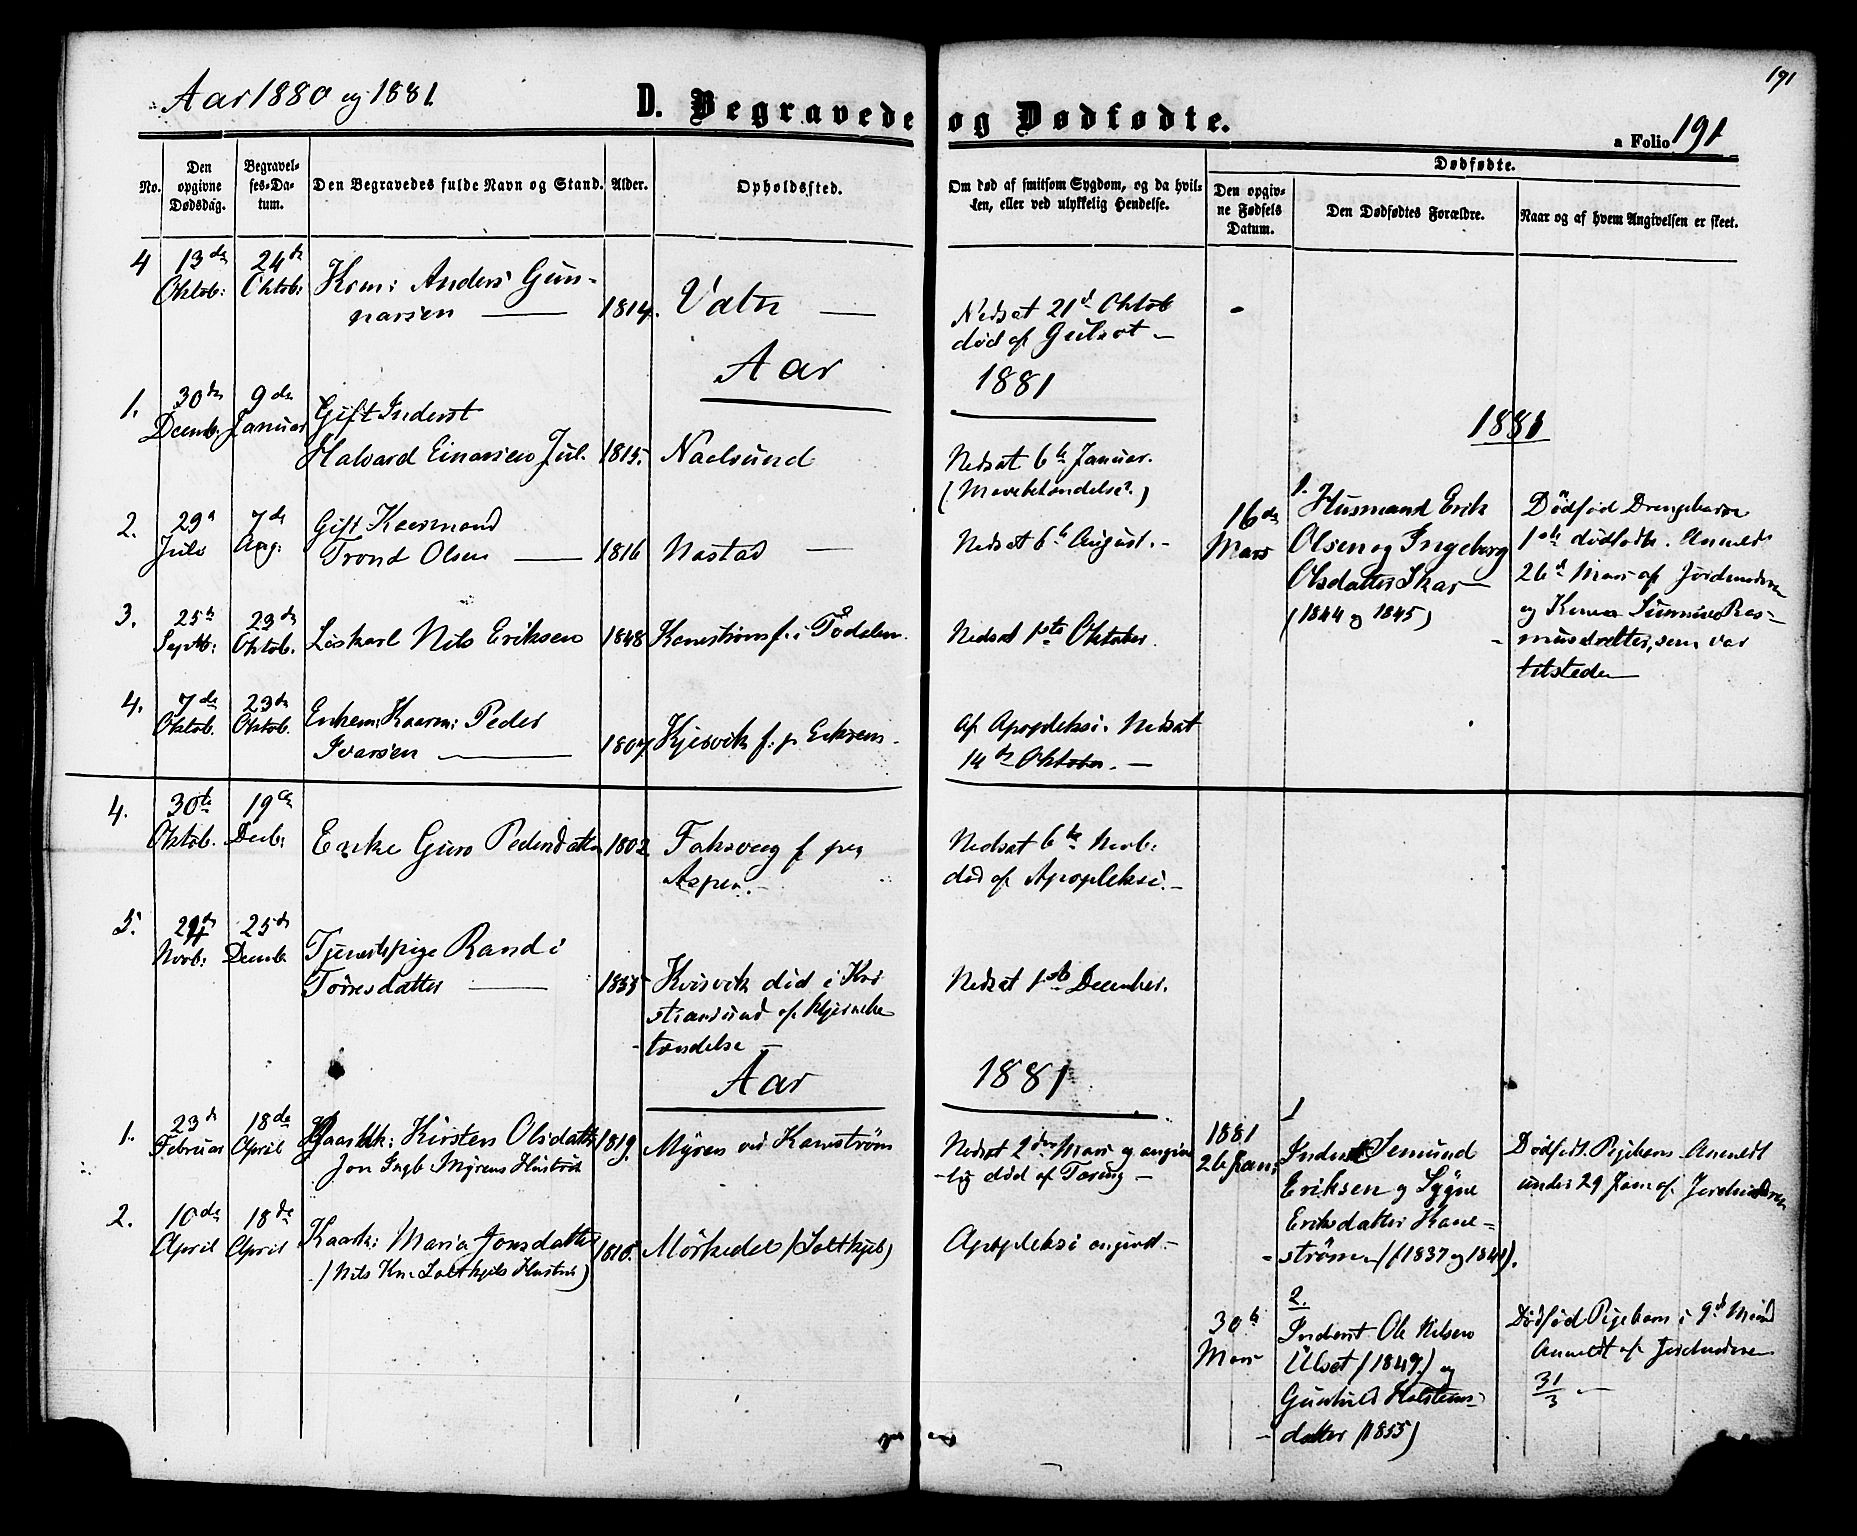 191
Aar 1880 og 1881
D. Begravede og Dødfødte.
a Folio 191
No.
Den opgivne Dødsdag.
Begravelses-Datum.
Den Begravedes fulde Navn og Stand.
Alder.
Opholdssted.
Om død af smitsom Sygdom, og da hvilken, eller ved ulykkelig Hendelse.
Dødfødte.
Den opgivne Fødsels Datum.
Den Dødfødtes Forældre.
Naar og af hvem Angivelsen er skeet.
4 13de Oktob: 24de Oktob:
Anders Gunnarsen — 1814. Vatn —
Nedsat 21d Oktob
død af Gulsot —
Aar 1881
1. 30de Decemb. 9de Januar
Gift Inderst
Halvard Einarsen Jul. 1815. Naelsund
Nedsat 6te Januar.
1881
2. 29 Juli 7de Aug:
Gift Kaarmand
Trond Olsen — 1816 Nastad —
Nedsat 6te August. —
16de Mars
1. Husmand Erik
Olsen og Ingeborg
Olsdatter Skar —
(1844 og 1845)
Dødfød Drengebarn
26d Mars af Jordemoderen
og Kona Rasmusdatter, som var
tilstede —
3. 25te Septb: 23de Oktob.
Løskarl Nils Eriksen 1848 Kanestrøm f. i Tødalen.
Nedsat 1ste Oktober.
4. 7de Oktob. 23de Oktob.
Enkem: Kaarm: Peder
Ivarsen — 1807 Kjesvik
Af Apopleksi. Nedsat
14de Oktober. —
4. 30te Oktob. 19de Decb:
Enke Guro Pedersdatter 1802 Faksvaag f. paa
Aspen. —
Nedsat 6te Novb:
død af Apopleksi. —
5. Novb: 25de Decemb.
Tjenestpige Randi
Toresdatter — 1835 Kvisvik død i Kristiansund af Hjernebetændelse —
Nedsat 1ste December.
Aar 1881.
1. 23de Februar 18de April
Kirsten Olsdatter 1819. Myren ved Kanestrøm
Jon Ingb Myrens Hustru
Nedsat 2den Mars og angivelig død af Tæring —
1881
26 Jan:
1
Inderst Semund
Eriksen og Sygne
Eriksdatter Kanestrøm (1837 og 1841).
Dødfødt Pigebarn Anmeldt
under 29 Jan: af Jordemoderen
2. 10de April 18de April
Kaark: Maria Jonsdatter 1816. Mørkedal (Soltkjel)
(Nils Kn. Soltkjels Hustru)
Apopleksi angivet. —
30te Mars
2.
Inderst Ole Nilsen
Ulset (1849) og
Gunhild Halstensdatter (1855)
Dødfød Pigebarn i 9d Maaned
Anmeldt af Jordmoderen
31/3 —